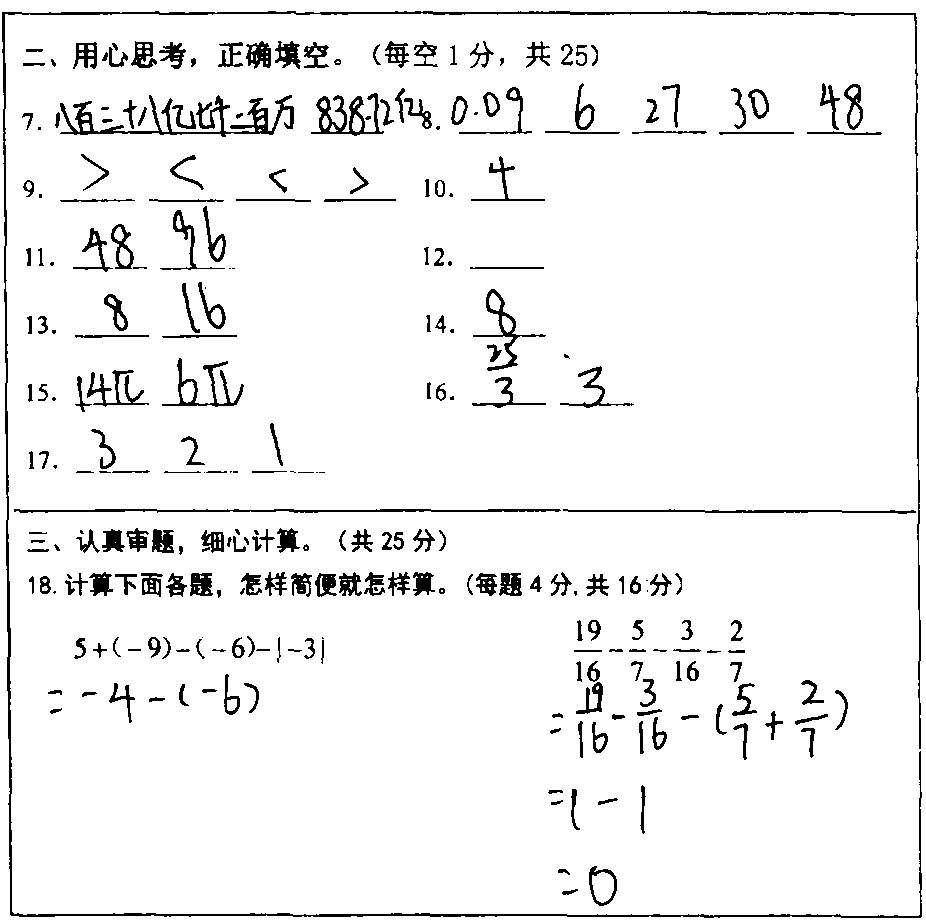 二、用心思考，正确填空。（每空1分，共25）
7. 八百三十八亿七千二百万 838.72亿 8. 0.09 6 27 30 48
9. > < < > 10. 4
11. 48 96 12.
13. 8 16 14. 8
15. 14π 6π 16. 25/3 3
17. 3 2 1
三、认真审题，细心计算。（共25分）
18. 计算下面各题，怎样简便就怎样算。（每题4分，共16分）
5+(-9)-(-6)-|-3| 19/16-5/7-3/16-2/7
=-4-(-6) =19/16-3/16-(5/7+2/7)
=1-1
=0